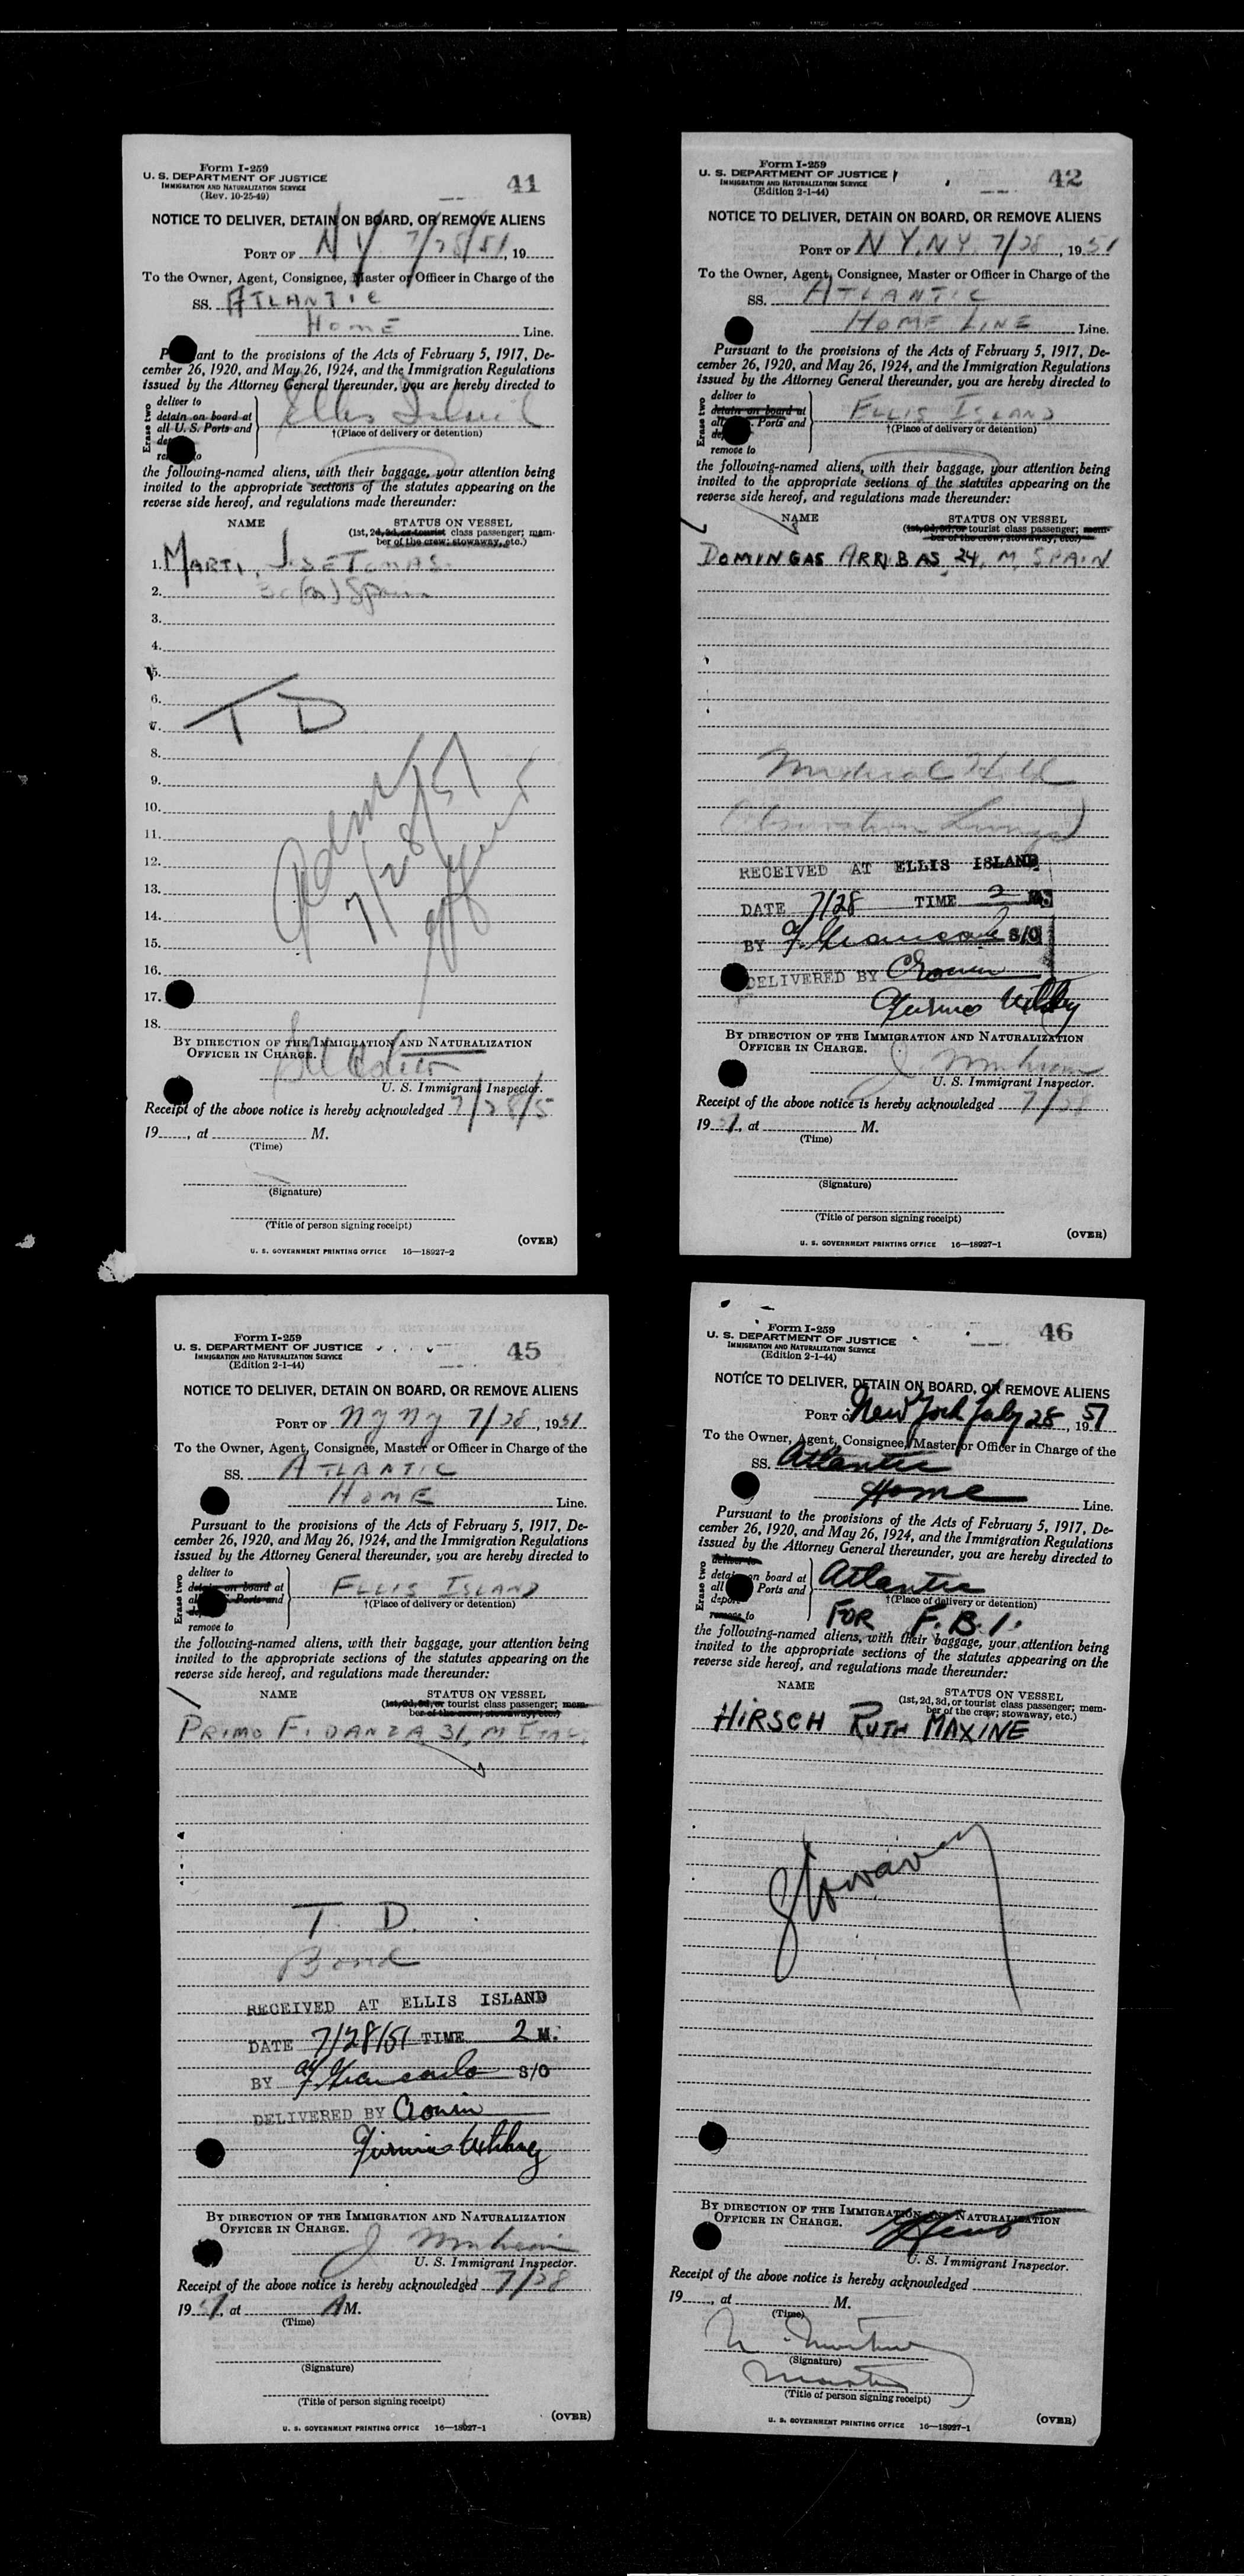 Form I-259
U. S. DEPARTMENT OF JUSTICE
IMMIGRATION AND NATURALIZATION SERVICE
(Rev. 10-25-49)
41
NOTICE TO DELIVER, DETAIN ON BOARD, OR REMOVE ALIENS
PORT OF N Y 7/28/51, 19
To the Owner, Agent, Consignee, Master or Officer in Charge of the
SS. ATLANTIC
HOME Line.
P ant to the provisions of the Acts of February 5, 1917, De-
cember 26, 1920, and May 26, 1924, and the Immigration Regulations
issued by the Attorney General thereunder, you are hereby directed to
Erase two
deliver to
detain on board at
all U. S. Ports and
Ellis Island
†(Place of delivery or detention)
the following-named aliens, with their baggage, your attention being
invited to the appropriate sections of the statutes appearing on the
reverse side hereof, and regulations made thereunder:
NAME STATUS ON VESSEL
(1st, 2d, 3d, or tourist class passenger; mem-
ber of the crew; stowaway, etc.)
1. MARTI, JOSE TOMAS
2. Spain
3.
4.
5.
6.
7. T D
8.
9.
10.
11.
12.
13.
14.
15.
16.
17.
18.
Adm 7/28/51
BY DIRECTION OF THE IMMIGRATION AND NATURALIZATION
OFFICER IN CHARGE.
U. S. Immigrant Inspector.
Receipt of the above notice is hereby acknowledged 7/28/5
19 , at M.
(Time)
(Signature)
(Title of person signing receipt)
(OVER)
U. S. GOVERNMENT PRINTING OFFICE 16—18927-2
Form I-259
U. S. DEPARTMENT OF JUSTICE
IMMIGRATION AND NATURALIZATION SERVICE
(Edition 2-1-44)
42
NOTICE TO DELIVER, DETAIN ON BOARD, OR REMOVE ALIENS
PORT OF N Y, N Y. 7/28, 1951
To the Owner, Agent, Consignee, Master or Officer in Charge of the
SS. ATLANTIC
HOME LINE Line.
Pursuant to the provisions of the Acts of February 5, 1917, De-
cember 26, 1920, and May 26, 1924, and the Immigration Regulations
issued by the Attorney General thereunder, you are hereby directed to
Erase two
deliver to
detain on board at
all . Ports and
remove to
ELLIS ISLAND
†(Place of delivery or detention)
the following-named aliens, with their baggage, your attention being
invited to the appropriate sections of the statutes appearing on the
reverse side hereof, and regulations made thereunder:
NAME STATUS ON VESSEL
(1st, 2d, 3d, or tourist class passenger; mem-
ber of the crew; stowaway, etc.)
DOMINGAS ARRIBAS, 24, M, SPAIN
Medical Hold
(Observation Lungs)
RECEIVED AT ELLIS ISLAND
DATE 7/28 TIME 2 M.
BY S/O
DELIVERED BY Cronin
BY DIRECTION OF THE IMMIGRATION AND NATURALIZATION
OFFICER IN CHARGE.
U. S. Immigrant Inspector.
Receipt of the above notice is hereby acknowledged 7/28
1951, at M.
(Time)
(Signature)
(Title of person signing receipt)
(OVER)
U. S. GOVERNMENT PRINTING OFFICE 16—18927-1
Form I-259
U. S. DEPARTMENT OF JUSTICE
IMMIGRATION AND NATURALIZATION SERVICE
(Edition 2-1-44)
45
NOTICE TO DELIVER, DETAIN ON BOARD, OR REMOVE ALIENS
PORT OF N Y N Y 7/28, 1951
To the Owner, Agent, Consignee, Master or Officer in Charge of the
SS. ATLANTIC
HOME Line.
Pursuant to the provisions of the Acts of February 5, 1917, De-
cember 26, 1920, and May 26, 1924, and the Immigration Regulations
issued by the Attorney General thereunder, you are hereby directed to
Erase two
deliver to
detain on board at
Ports and
remove to
ELLIS ISLAND
†(Place of delivery or detention)
the following-named aliens, with their baggage, your attention being
invited to the appropriate sections of the statutes appearing on the
reverse side hereof, and regulations made thereunder:
NAME STATUS ON VESSEL
(1st, 2d, 3d, or tourist class passenger; mem-
ber of the crew; stowaway, etc.)
PRIMO FIDANZA, 31, M ITAL.
T. D.
Bond
RECEIVED AT ELLIS ISLAND
DATE 7/28/51 TIME 2 M.
BY S/O
DELIVERED BY Cronin
BY DIRECTION OF THE IMMIGRATION AND NATURALIZATION
OFFICER IN CHARGE.
U. S. Immigrant Inspector.
Receipt of the above notice is hereby acknowledged 7/28
1951, at AM.
(Time)
(Signature)
(Title of person signing receipt)
(OVER)
U. S. GOVERNMENT PRINTING OFFICE 16—18927-1
Form I-259
U. S. DEPARTMENT OF JUSTICE
IMMIGRATION AND NATURALIZATION SERVICE
(Edition 2-1-44)
46
NOTICE TO DELIVER, DETAIN ON BOARD, OR REMOVE ALIENS
PORT O New York July 28, 1951
To the Owner, Agent, Consignee, Master or Officer in Charge of the
SS. Atlantic
Home Line.
Pursuant to the provisions of the Acts of February 5, 1917, De-
cember 26, 1920, and May 26, 1924, and the Immigration Regulations
issued by the Attorney General thereunder, you are hereby directed to
Erase two
deliver to
detain on board at
all Ports and
deport
remove to
Atlantic
†(Place of delivery or detention)
FOR F.B.I.
the following-named aliens, with their baggage, your attention being
invited to the appropriate sections of the statutes appearing on the
reverse side hereof, and regulations made thereunder:
NAME STATUS ON VESSEL
(1st, 2d, 3d, or tourist class passenger; mem-
ber of the crew; stowaway, etc.)
HIRSCH RUTH MAXINE
Stowaway
BY DIRECTION OF THE IMMIGRATION AND NATURALIZATION
OFFICER IN CHARGE.
U. S. Immigrant Inspector.
Receipt of the above notice is hereby acknowledged
19 , at M.
(Time)
(Signature)
Master
(Title of person signing receipt)
(OVER)
U. S. GOVERNMENT PRINTING OFFICE 16—18927-1